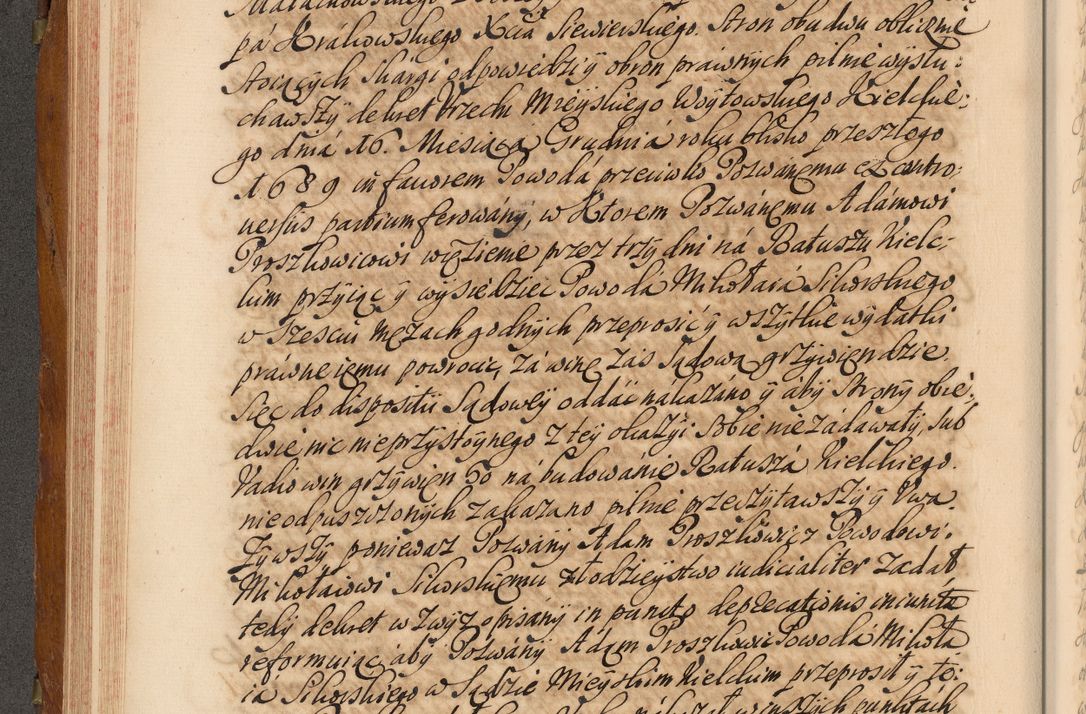 pá Krákowskiego Xcia Siewierskiego. Stron obudwu oblicznie
stoiących skárgi odpowiedzi ÿ obron práwnÿch pilnie wÿsłu:
chawszÿ dekret Vrzedu Mieÿskiego Woÿtowskiego Kielckie:
go dniá 16. Miesiąca Grudniá roku blisko przeszłego
1689 in fauorem Powodá przeciwko Pozwánemu ex contro:
uersus partium ferowánÿ, w Ktorem Pozwánemu Adámowi
Proszkowicowi więzienie przez trzÿ dni ná Ratuszu Kielc:
kim przÿiąc ÿ wÿsiedziec Powodá Mikołaiá Sikorskiego
w szesciu męzach godnÿch przeprosić ÿ wszÿtkie wÿdatki
práwne iemu powrocic, zá winę zás Sądową grzÿwien dzie
sięc do disposÿtii Sądoweÿ oddáć nákazano ÿ aby Stronÿ obie:
dwie nic nieprzÿstoÿnego z teÿ okazÿi sobie niezádawałÿ, sub
Vadio win grzÿwien 30 ná budowánie Ratuszá Kielckiego.
nieodpuszczonÿch zakazano pilnie przeczÿtawszÿ ÿ Vwa
zÿwszÿ poniewaz Pozwánÿ Adam Proszkowicz Powodowi.
Mikołaiowi Sikorskiemu złodzieÿstwo iudicialiter zadał
tedÿ dekret w zwÿz opisánÿ in puncto deprecationis iniuriæ
reformuiąc áby Pozwánÿ Adam Proszkowic Powodá Mikoła
ia Sikorskiego w Sądzie Mieÿskim Kielckim przeprosił ÿ to: